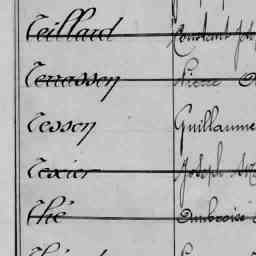 Teillard Constant
Terrasson Pierre
Tesson Guillaume
Texier Joseph
Thé Ambroise